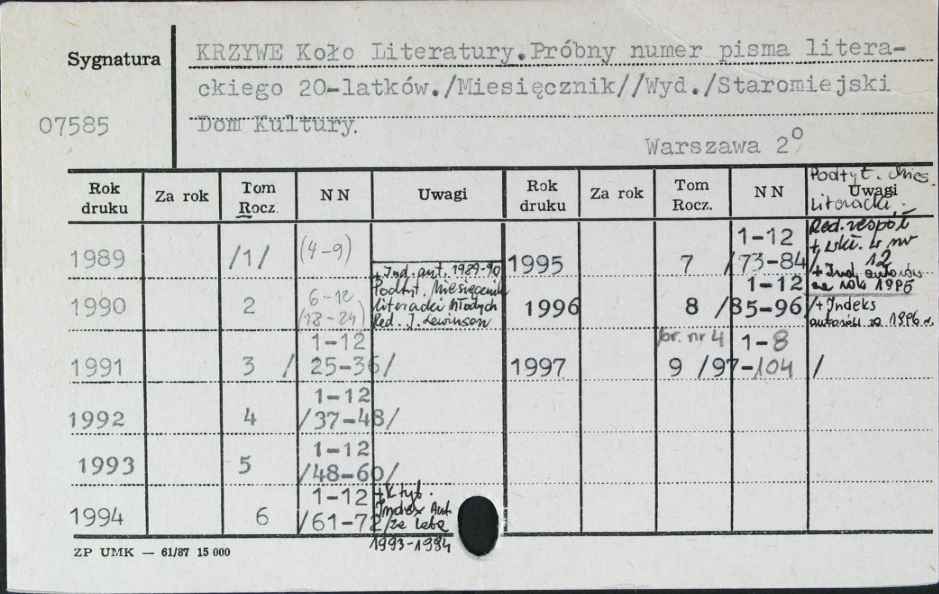 Sygnatura
07585
KRZYWE Koło Literatury.Próbny numer pisma litera-
ckiego 20-latków./Miesięcznik//Wyd./Staromiejski
Dom Kultury.
Warszawa 2°
Rok druku Za rok Tom Rocz. NN Uwagi Rok druku Za rok Tom Rocz. NN Uwagi
Podtyt. Mies.
Literacki.
1989 /1/ (4-9)
1990 2 6-12 /18-24/
+ Ind. aut. 1989-90
Podtyt. Miesięcznik
literacki Młodych
Red. J. Lewinson
1991 3 1-12 /25-36/
1992 4 1-12 /37-48/
1993 5 1-12 /48-60/
1994 6 1-12 /61-72/
Index Aut
za lata
1993-1994
1995 7 1-12 /73-84/
Red. zespół
12
+ Ind. autorów
za rok 1995
1996 8 1-12 /85-96/
+ Indeks
autorów za 1996 r.
1997 9 /br. nr 4 1-8 /97-104/
ZP UMK — 61/87 15 000